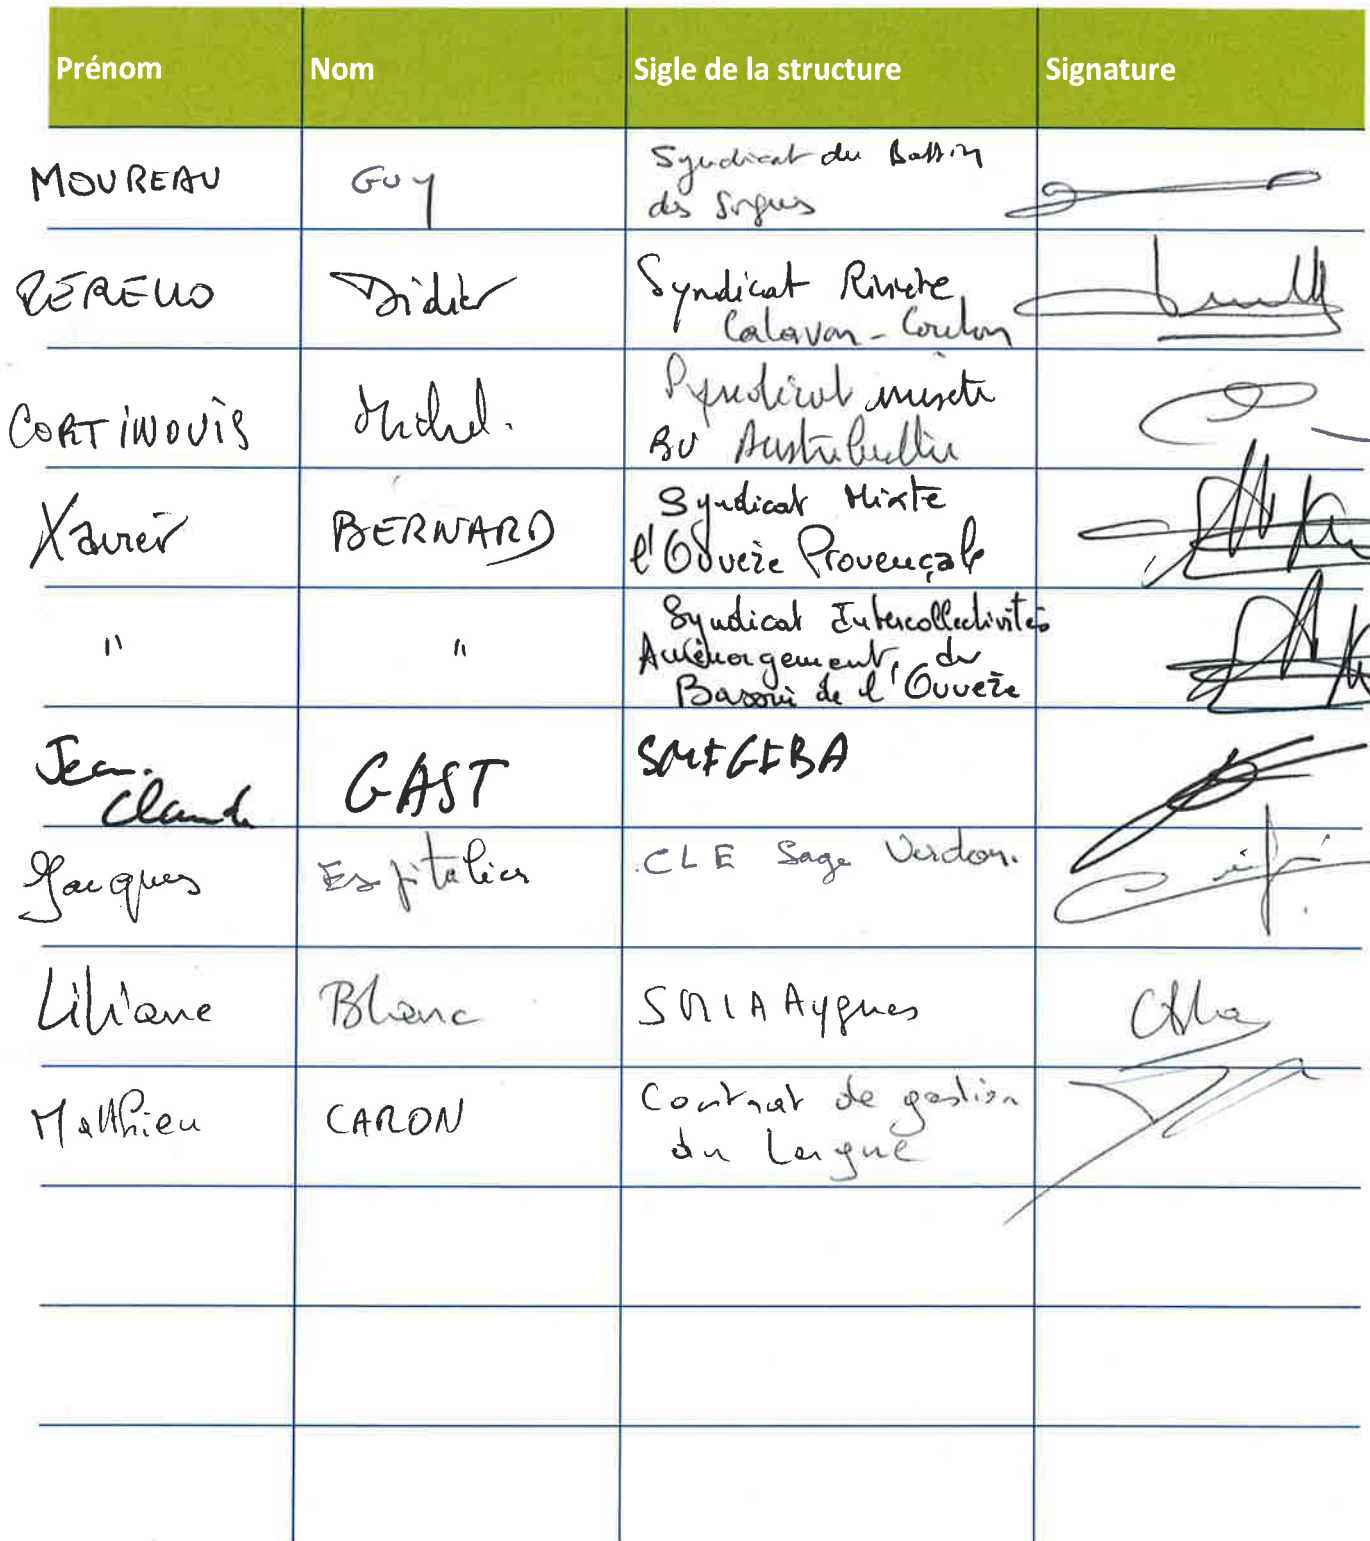 Prénom Nom Sigle de la structure Signature
MOUREAU Guy Syndicat du Bassin
des Sorgues
PERELLO Didier Syndicat Rivière
Calavon - Coulon
CORTINOVIS Michel. Syndicat mixte
BV
Xavier BERNARD Syndicat Mixte
l'Ouvèze Provençale
" " Syndicat Intercollectivités
Aménagement du
Bassin de l'Ouvèze
Jean. GAST SMEGEBA
Claude
Jacques Espitalier CLE Sage Verdon.
Liliane Blanc SMIAAygues
Matthieu CARON Contrat de gestion
du Largue